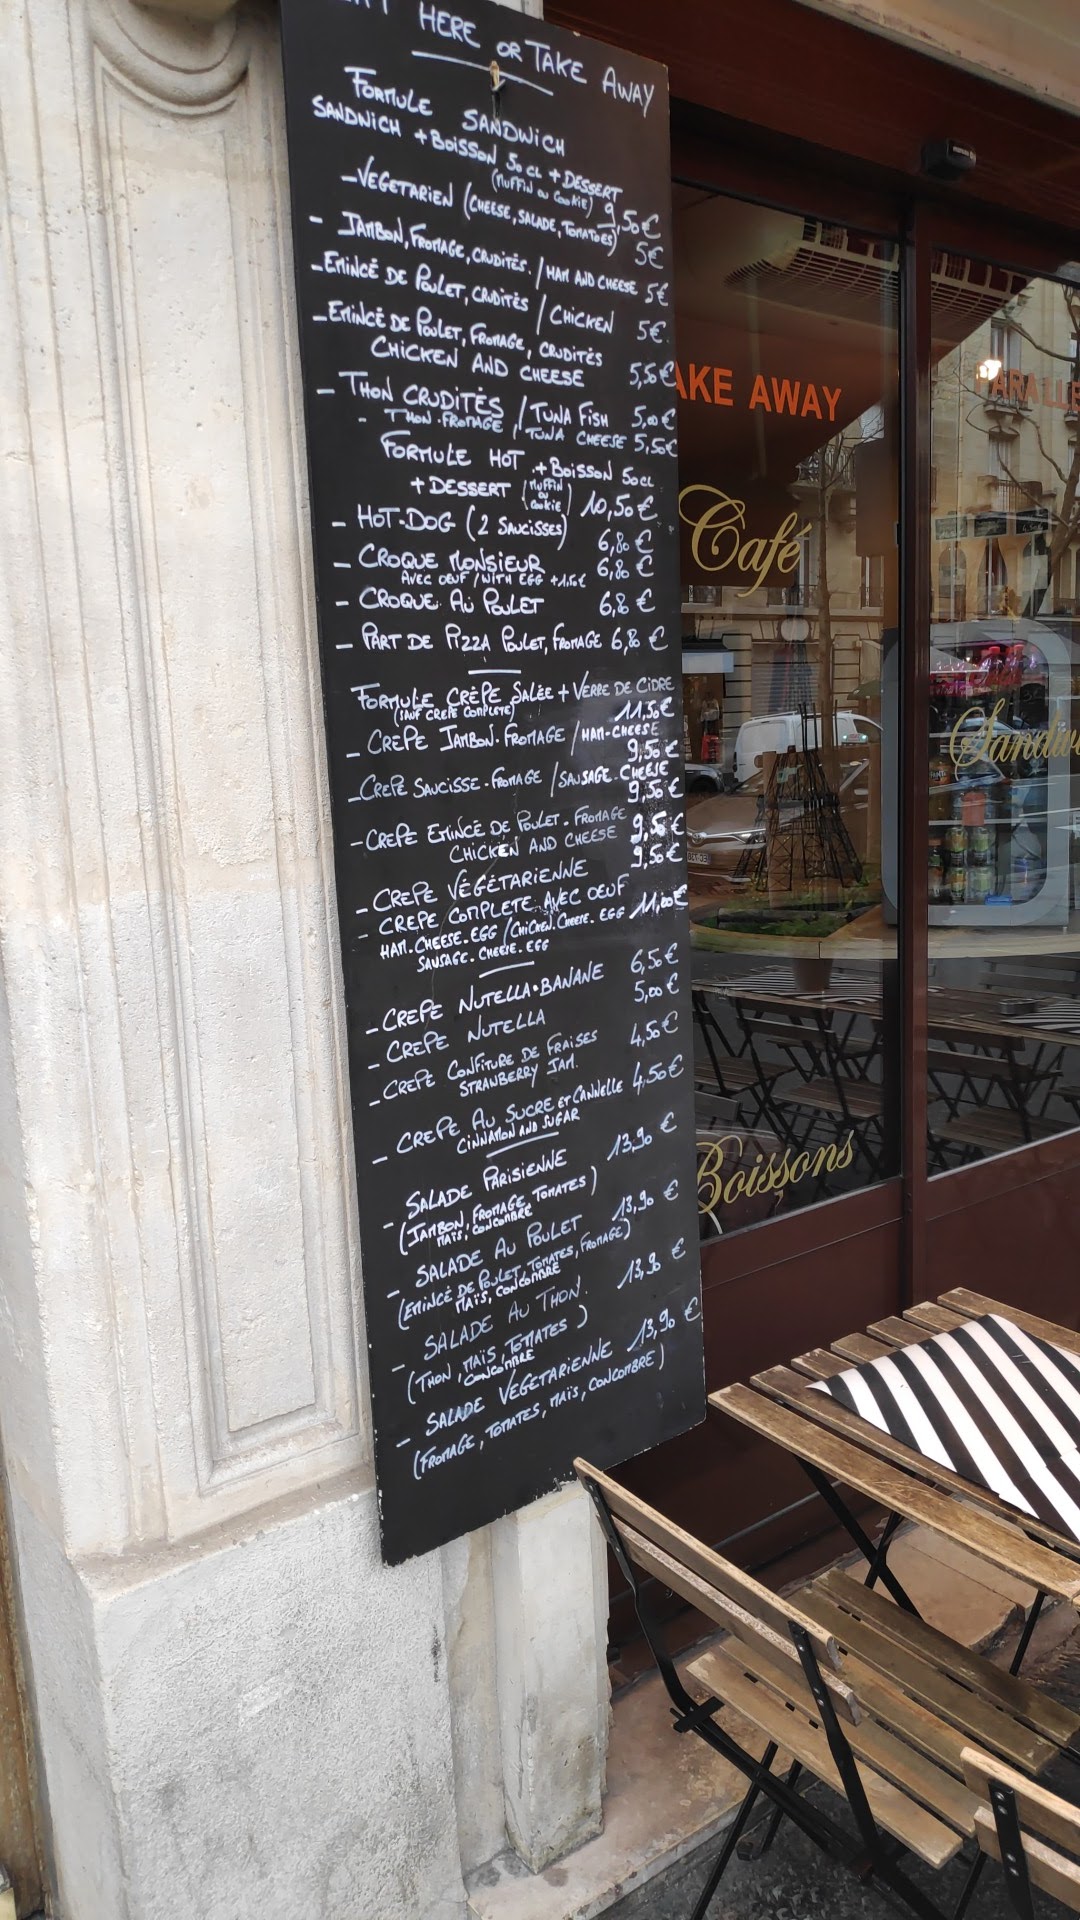 HERE OR TAKE AWAY
FORMULE SANDWICH
SANDWICH + BOISSON 50 CL + DESSERT
(MUFFIN OU COOKIE) 9,50€
- VEGETARIEN (CHEESE, SALADE, TOMATOES) 5€
- JAMBON, FROMAGE, CRUDITÉS. / HAM AND CHEESE 5€
- EMINCÉ DE POULET, CRUDITÉS / CHICKEN 5€.
- EMINCÉ DE POULET, FROMAGE, CRUDITÉS
CHICKEN AND CHEESE 5,50€
- THON CRUDITÉS / TUNA FISH 5,00€
- THON-FROMAGE / TUNA CHEESE 5,50€
FORMULE HOT + BOISSON 50CL
+ DESSERT (MUFFIN OU COOKIE) 10,50€
- HOT-DOG (2 SAUCISSES) 6,80€
- CROQUE MONSIEUR 6,80€
AVEC OEUF / WITH EGG +1.5€
- CROQUE AU POULET 6,80€
- PART DE PIZZA POULET, FROMAGE 6,80€
FORMULE CRÊPE SALÉE + VERRE DE CIDRE
(SAUF CREPE COMPLETE) 11,50€
- CREPE JAMBON-FROMAGE / HAM-CHEESE
9,50€
- CREPE SAUCISSE-FROMAGE / SAUSAGE-CHEESE
9,50€
- CREPE EMINCÉ DE POULET-FROMAGE 9,5€
CHICKEN AND CHEESE
- CREPE VÉGÉTARIENNE 9,50€
- CREPE COMPLETE AVEC OEUF 11,00€
HAM-CHEESE-EGG / CHICKEN-CHEESE-EGG
SAUSAGE-CHEESE-EGG
- CREPE NUTELLA-BANANE 6,50€
- CREPE NUTELLA 5,00€
- CREPE CONFITURE DE FRAISES 4,50€
STRAWBERRY JAM.
- CREPE AU SUCRE ET CANNELLE 4,50€
CINNAMON AND SUGAR
- SALADE PARISIENNE 13,90€
(JAMBON, FROMAGE, TOMATES)
MAÏS, CONCOMBRE
- SALADE AU POULET 13,90€
(EMINCÉ DE POULET, TOMATES, FROMAGE)
MAÏS, CONCOMBRE
- SALADE AU THON. 13,90€
(THON, MAÏS, TOMATES)
CONCOMBRE
- SALADE VEGETARIENNE 13,90€
(FROMAGE, TOMATES, MAÏS, CONCOMBRE)
AKE AWAY
Café
Sandw
Boissons